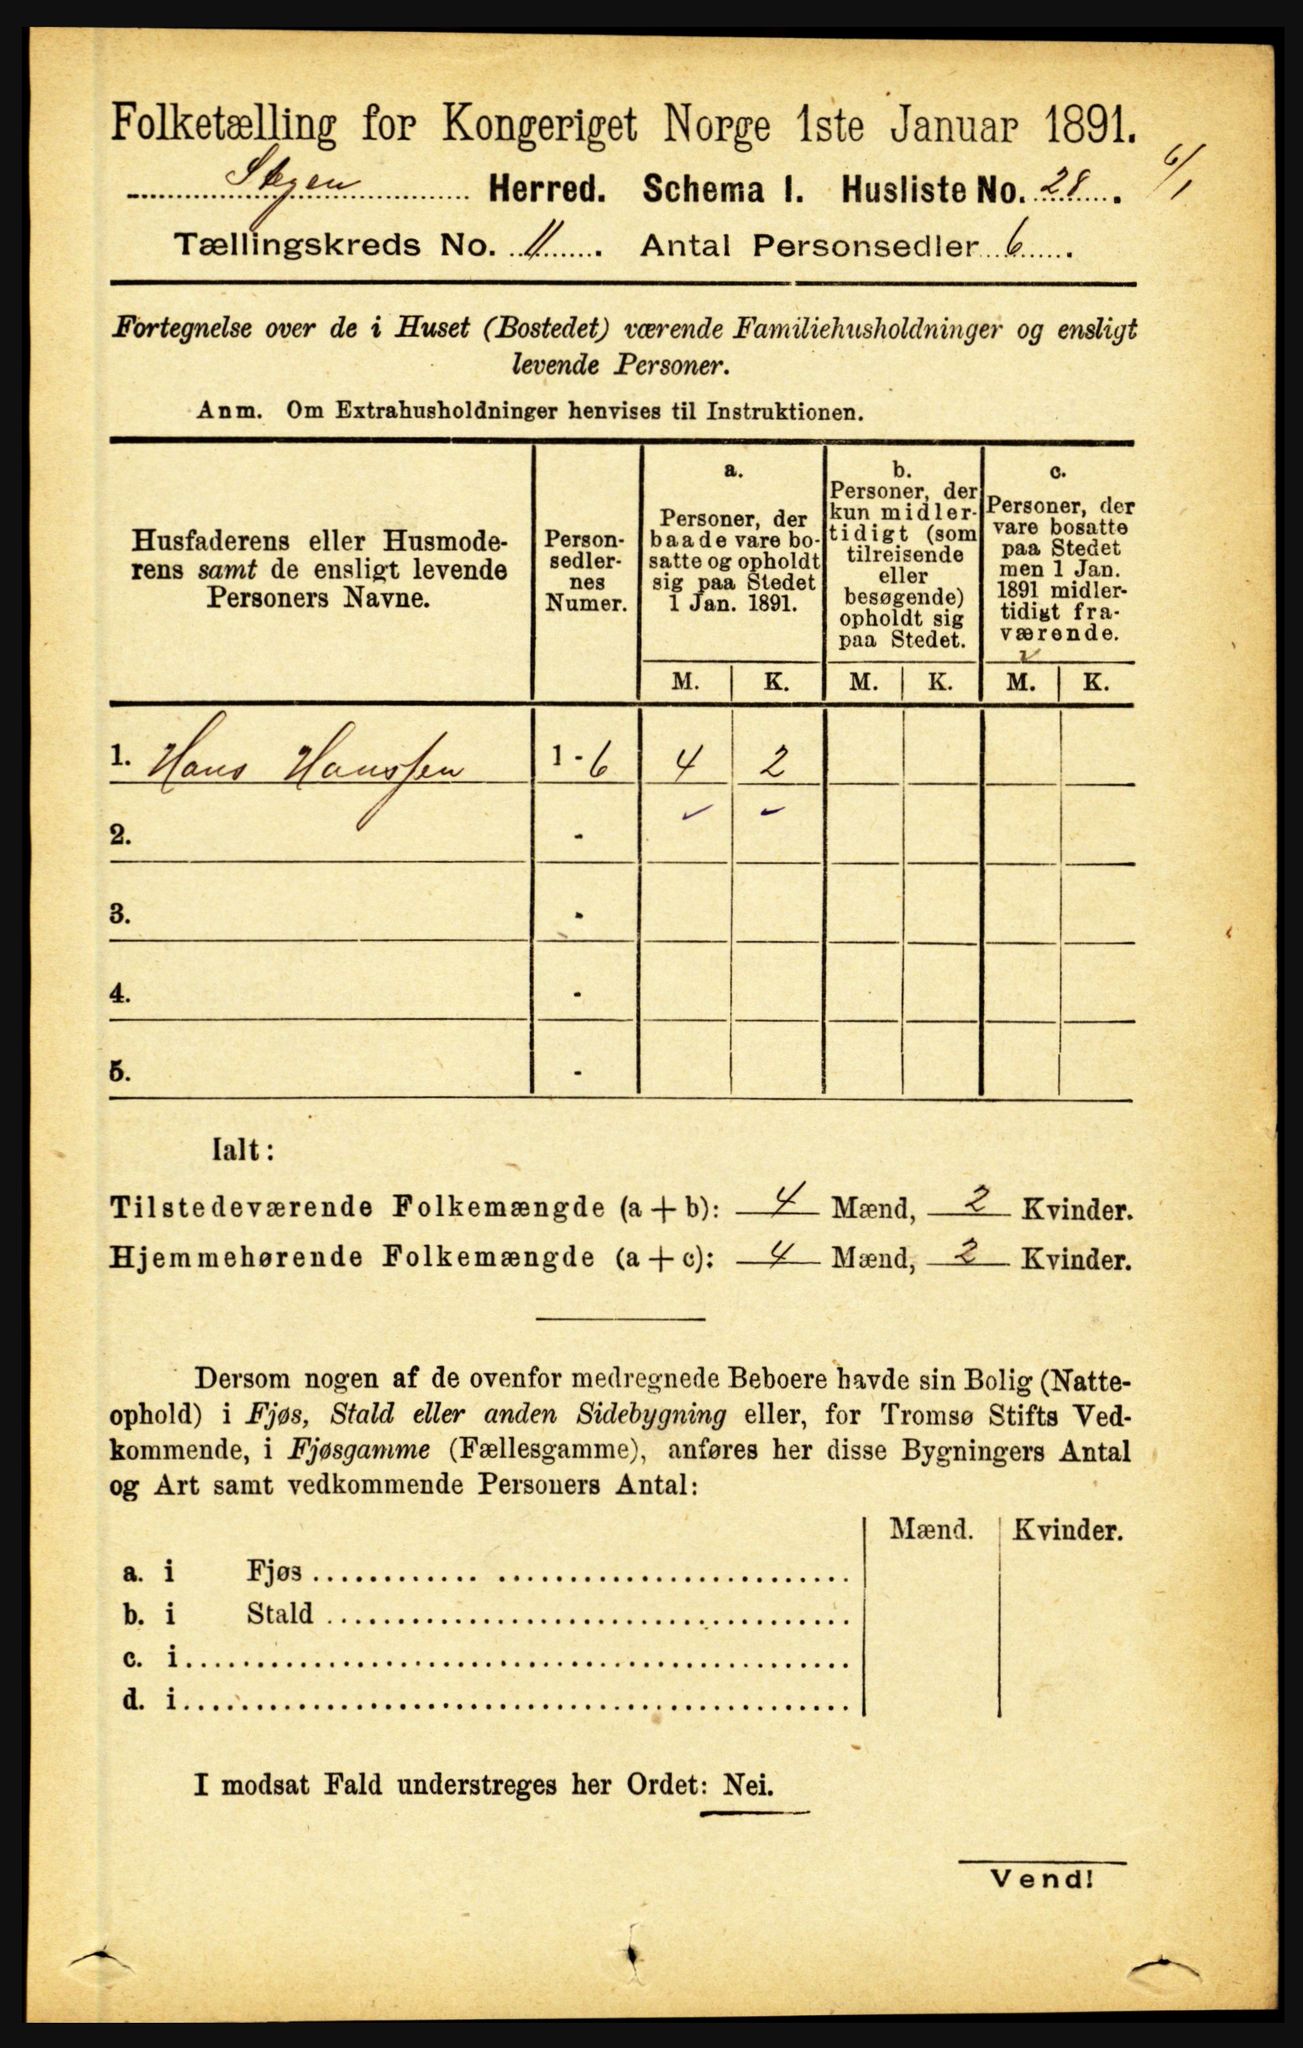 Folketælling for Kongeriget Norge 1ste Januar 1891.
Stegen Herred. Schema I. Husliste No. 28. 6/1
Tællingskreds No. 11. Antal Personsedler 6.
Fortegnelse over de i Huset (Bostedet) værende Familiehusholdninger og ensligt
levende Personer.
Anm. Om Extrahusholdninger henvises til Instruktionen.
Husfaderens eller Husmode-
rens samt de ensligt levende
Personers Navne.
Person-
sedler-
nes
Numer.
a.
Personer, der
baade vare bo-
satte og opholdt
sig paa Stedet
1 Jan. 1891.
b.
Personer, der
kun midler-
tidigt (som
tilreisende
eller
besøgende)
opholdt sig
paa Stedet.
c.
Personer, der
vare bosatte
paa Stedet
men 1 Jan.
1891 midler-
tidigt fra-
værende.
M. K. M. K. M. K.
1. Hans Hanssen 1 - 6 4 2
2. -
3. -
4. -
5. -
Ialt:
Tilstedeværende Folkemængde (a + b): 4 Mænd, 2 Kvinder.
Hjemmehørende Folkemængde (a + c): 4 Mænd, 2 Kvinder.
Dersom nogen af de ovenfor medregnede Beboere havde sin Bolig (Natte-
ophold) i Fjøs, Stald eller anden Sidebygning eller, for Tromsø Stifts Ved-
kommende, i Fjøsgamme (Fællesgamme), anføres her disse Bygningers Antal
og Art samt vedkommende Personers Antal:
Mænd. Kvinder.
a. i Fjøs
b. i Stald
c. i
d. i
I modsat Fald understreges her Ordet: Nei.
Vend!